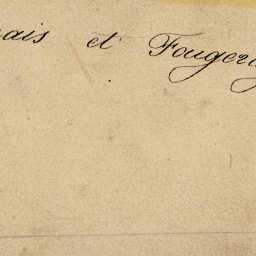 ais et Fougera